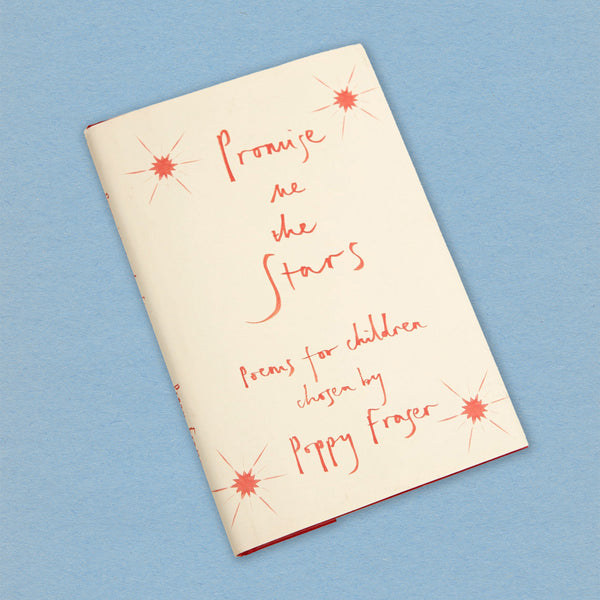 Promise
me
the
Stars
Poems for children
chosen by
Poppy Fraser